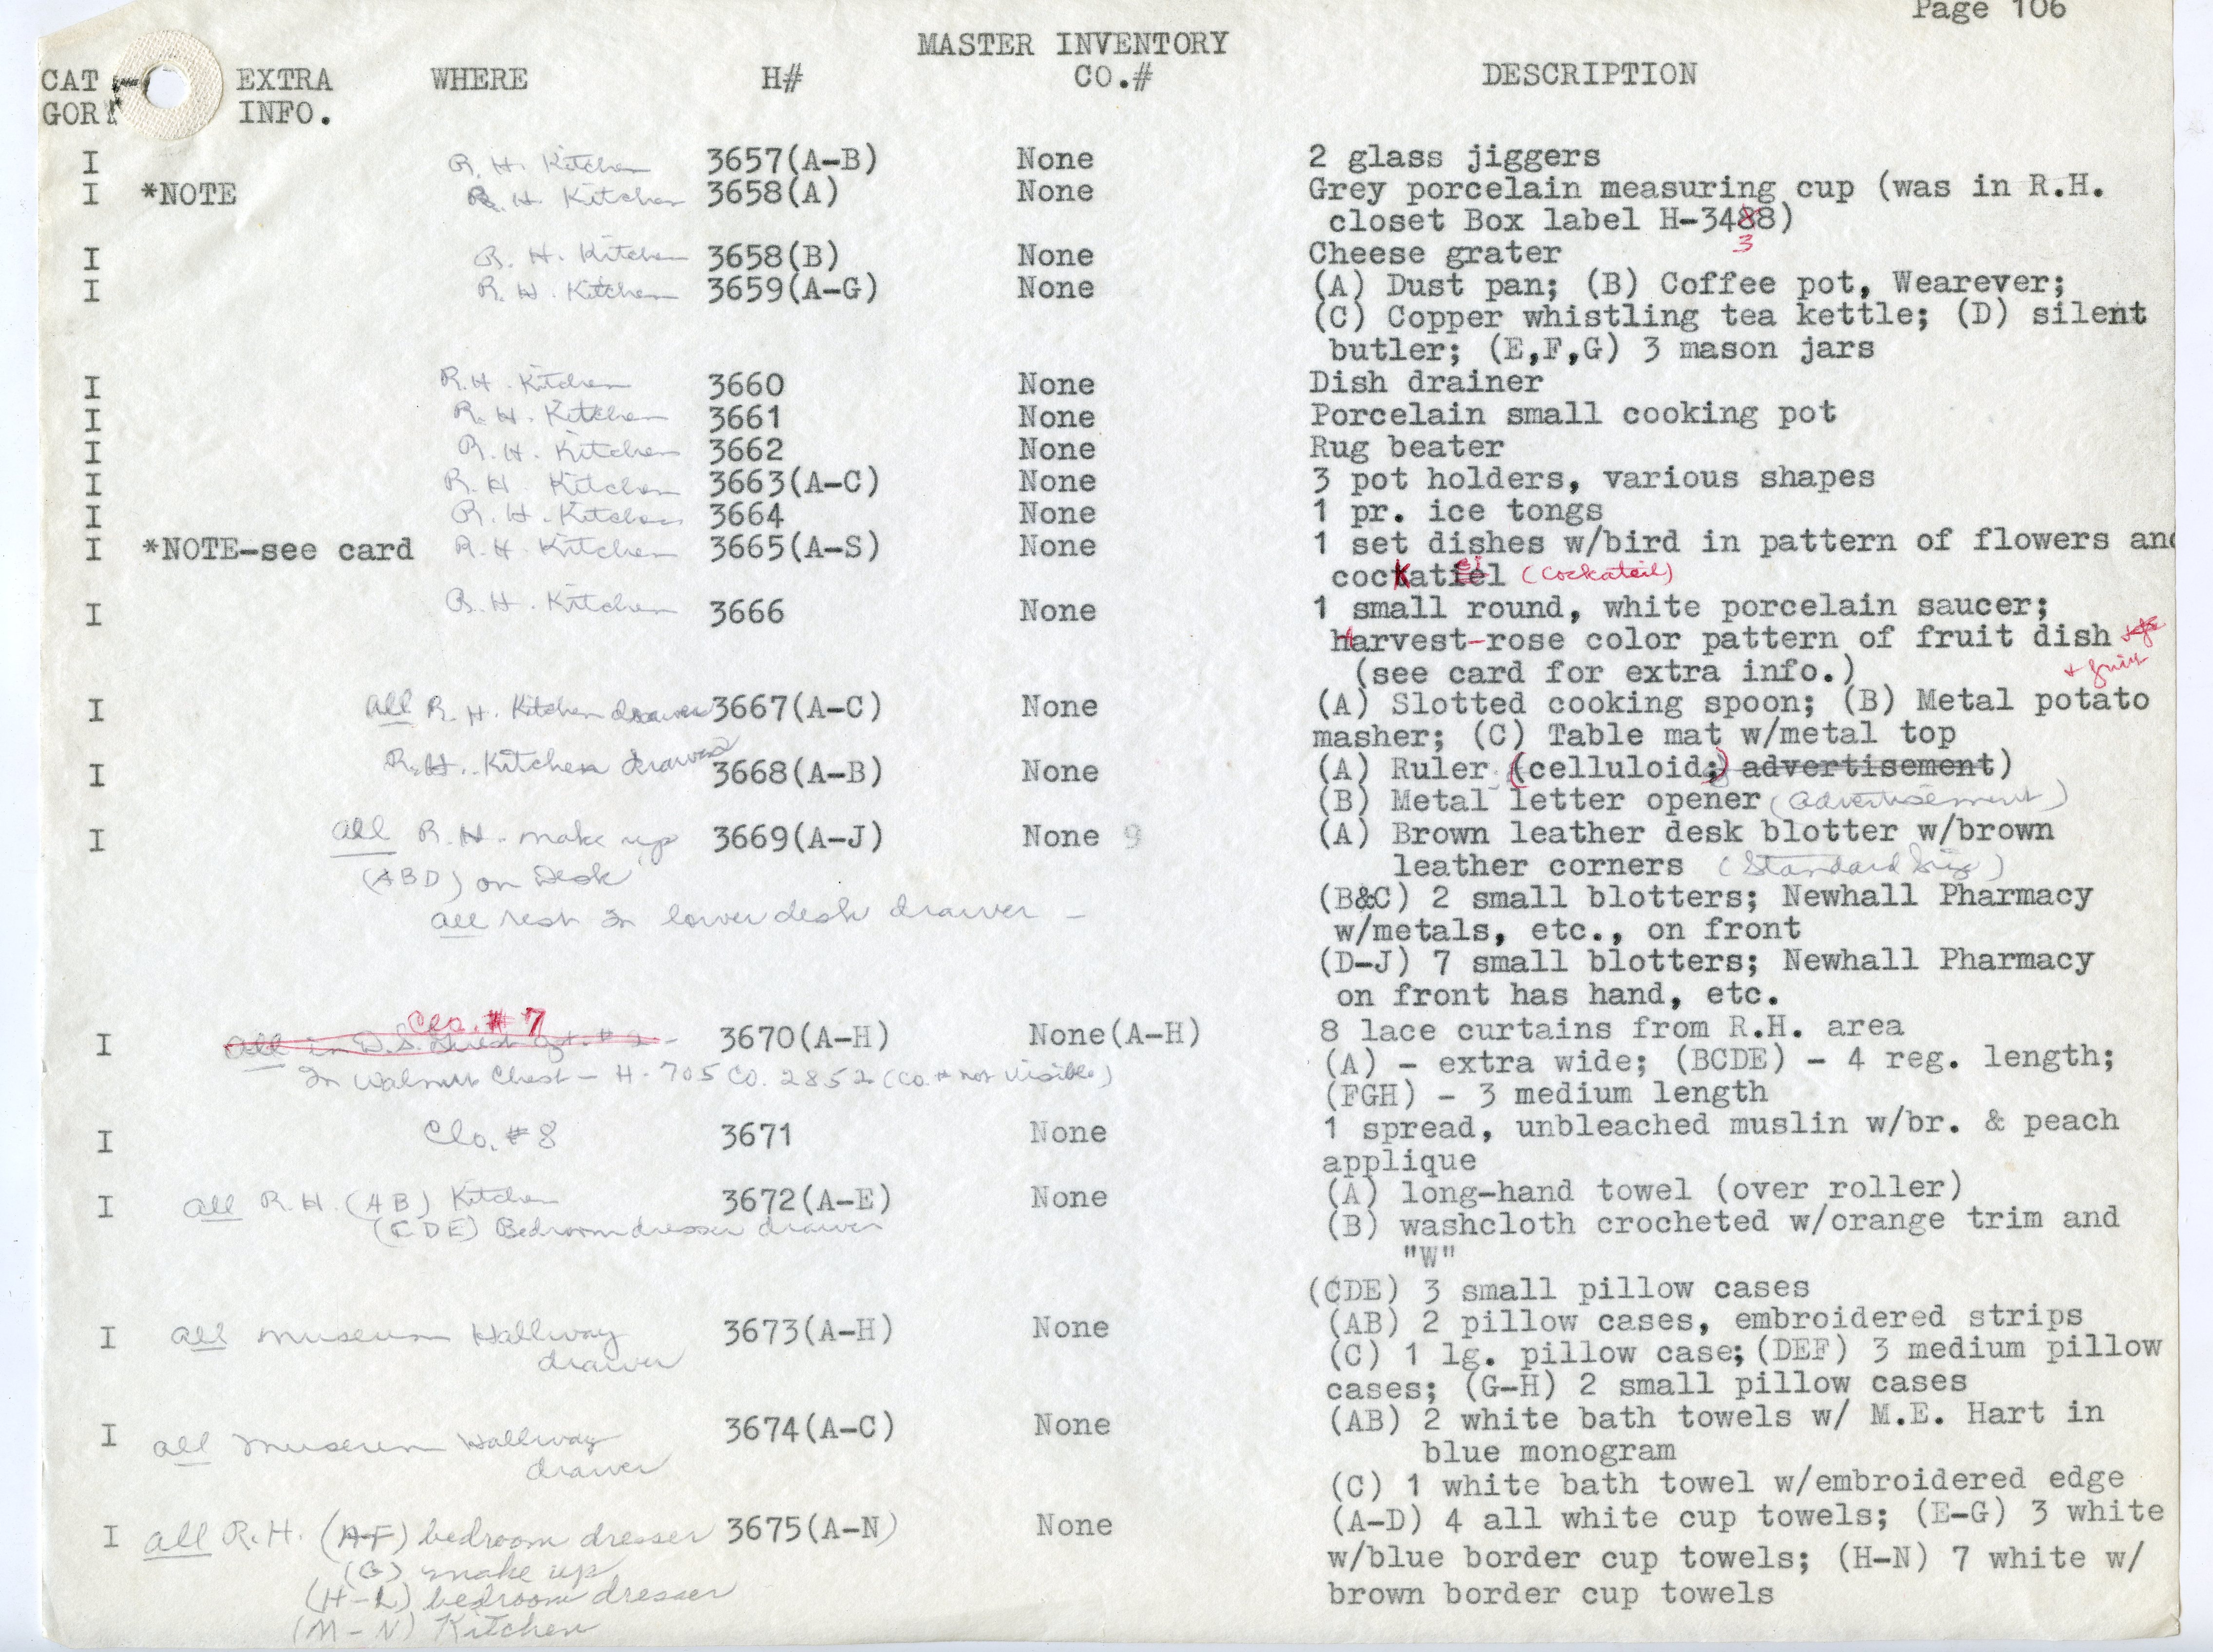 Page 106
MASTER INVENTORY
CAT EXTRA WHERE H# CO.# DESCRIPTION
GOR INFO.
I R. H. Kitchen 3657(A-B) None 2 glass jiggers
I *NOTE R. H. Kitchen 3658(A) None Grey porcelain measuring cup (was in R.H.
closet Box label H-3488)
3
I R. H. Kitchen 3658(B) None Cheese grater
I R. H. Kitchen 3659(A-G) None (A) Dust pan; (B) Coffee pot, Wearever;
(C) Copper whistling tea kettle; (D) silent
butler; (E,F,G) 3 mason jars
I R.H. Kitchen 3660 None Dish drainer
I R. H. Kitchen 3661 None Porcelain small cooking pot
I R. H. Kitchen 3662 None Rug beater
I R. H. Kitchen 3663(A-C) None 3 pot holders, various shapes
I R. H. Kitchen 3664 None 1 pr. ice tongs
I *NOTE-see card R. H. Kitchen 3665(A-S) None 1 set dishes w/bird in pattern of flowers and
cockatiel ei (Cockateil)
I R. H. Kitchen 3666 None 1 small round, white porcelain saucer;
harvest-rose color pattern of fruit dish
(see card for extra info.) + fruit
I all R. H. Kitchen drawer 3667(A-C) None (A) Slotted cooking spoon; (B) Metal potato
masher; (C) Table mat w/metal top
I R.H. Kitchen drawer 3668(A-B) None (A) Ruler (celluloid;) advertisement)
(B) Metal letter opener (advertisement)
I all R. H. make up 3669(A-J) None 9 (A) Brown leather desk blotter w/brown
(ABD) on Desk leather corners (Standard Size)
all rest In lower desk drawer - (B&C) 2 small blotters; Newhall Pharmacy
w/metals, etc., on front
(D-J) 7 small blotters; Newhall Pharmacy
on front has hand, etc.
Clo. # 7
I all in 3670(A-H) None(A-H) 8 lace curtains from R.H. area
In Walnut Chest - H-705 CO. 2852 (co. # not visible) (A) - extra wide; (BCDE) - 4 reg. length;
(FGH) - 3 medium length
I Clo. #8 3671 None 1 spread, unbleached muslin w/br. & peach
applique
I all R.H. (AB) Kitchen 3672(A-E) None (A) long-hand towel (over roller)
(CDE) Bedroom dresser drawer (B) washcloth crocheted w/orange trim and
"W"
(CDE) 3 small pillow cases
I all museum Hallway 3673(A-H) None (AB) 2 pillow cases, embroidered strips
drawer (C) 1 lg. pillow case; (DEF) 3 medium pillow
cases; (G-H) 2 small pillow cases
I all museum Hallway 3674(A-C) None (AB) 2 white bath towels w/ M.E. Hart in
drawer blue monogram
(C) 1 white bath towel w/embroidered edge
I all R.H. (A-F) bedroom dresser 3675(A-N) None (A-D) 4 all white cup towels; (E-G) 3 white
(G) make up w/blue border cup towels; (H-N) 7 white w/
(H-L) bedroom dresser brown border cup towels
(M-N) Kitchen